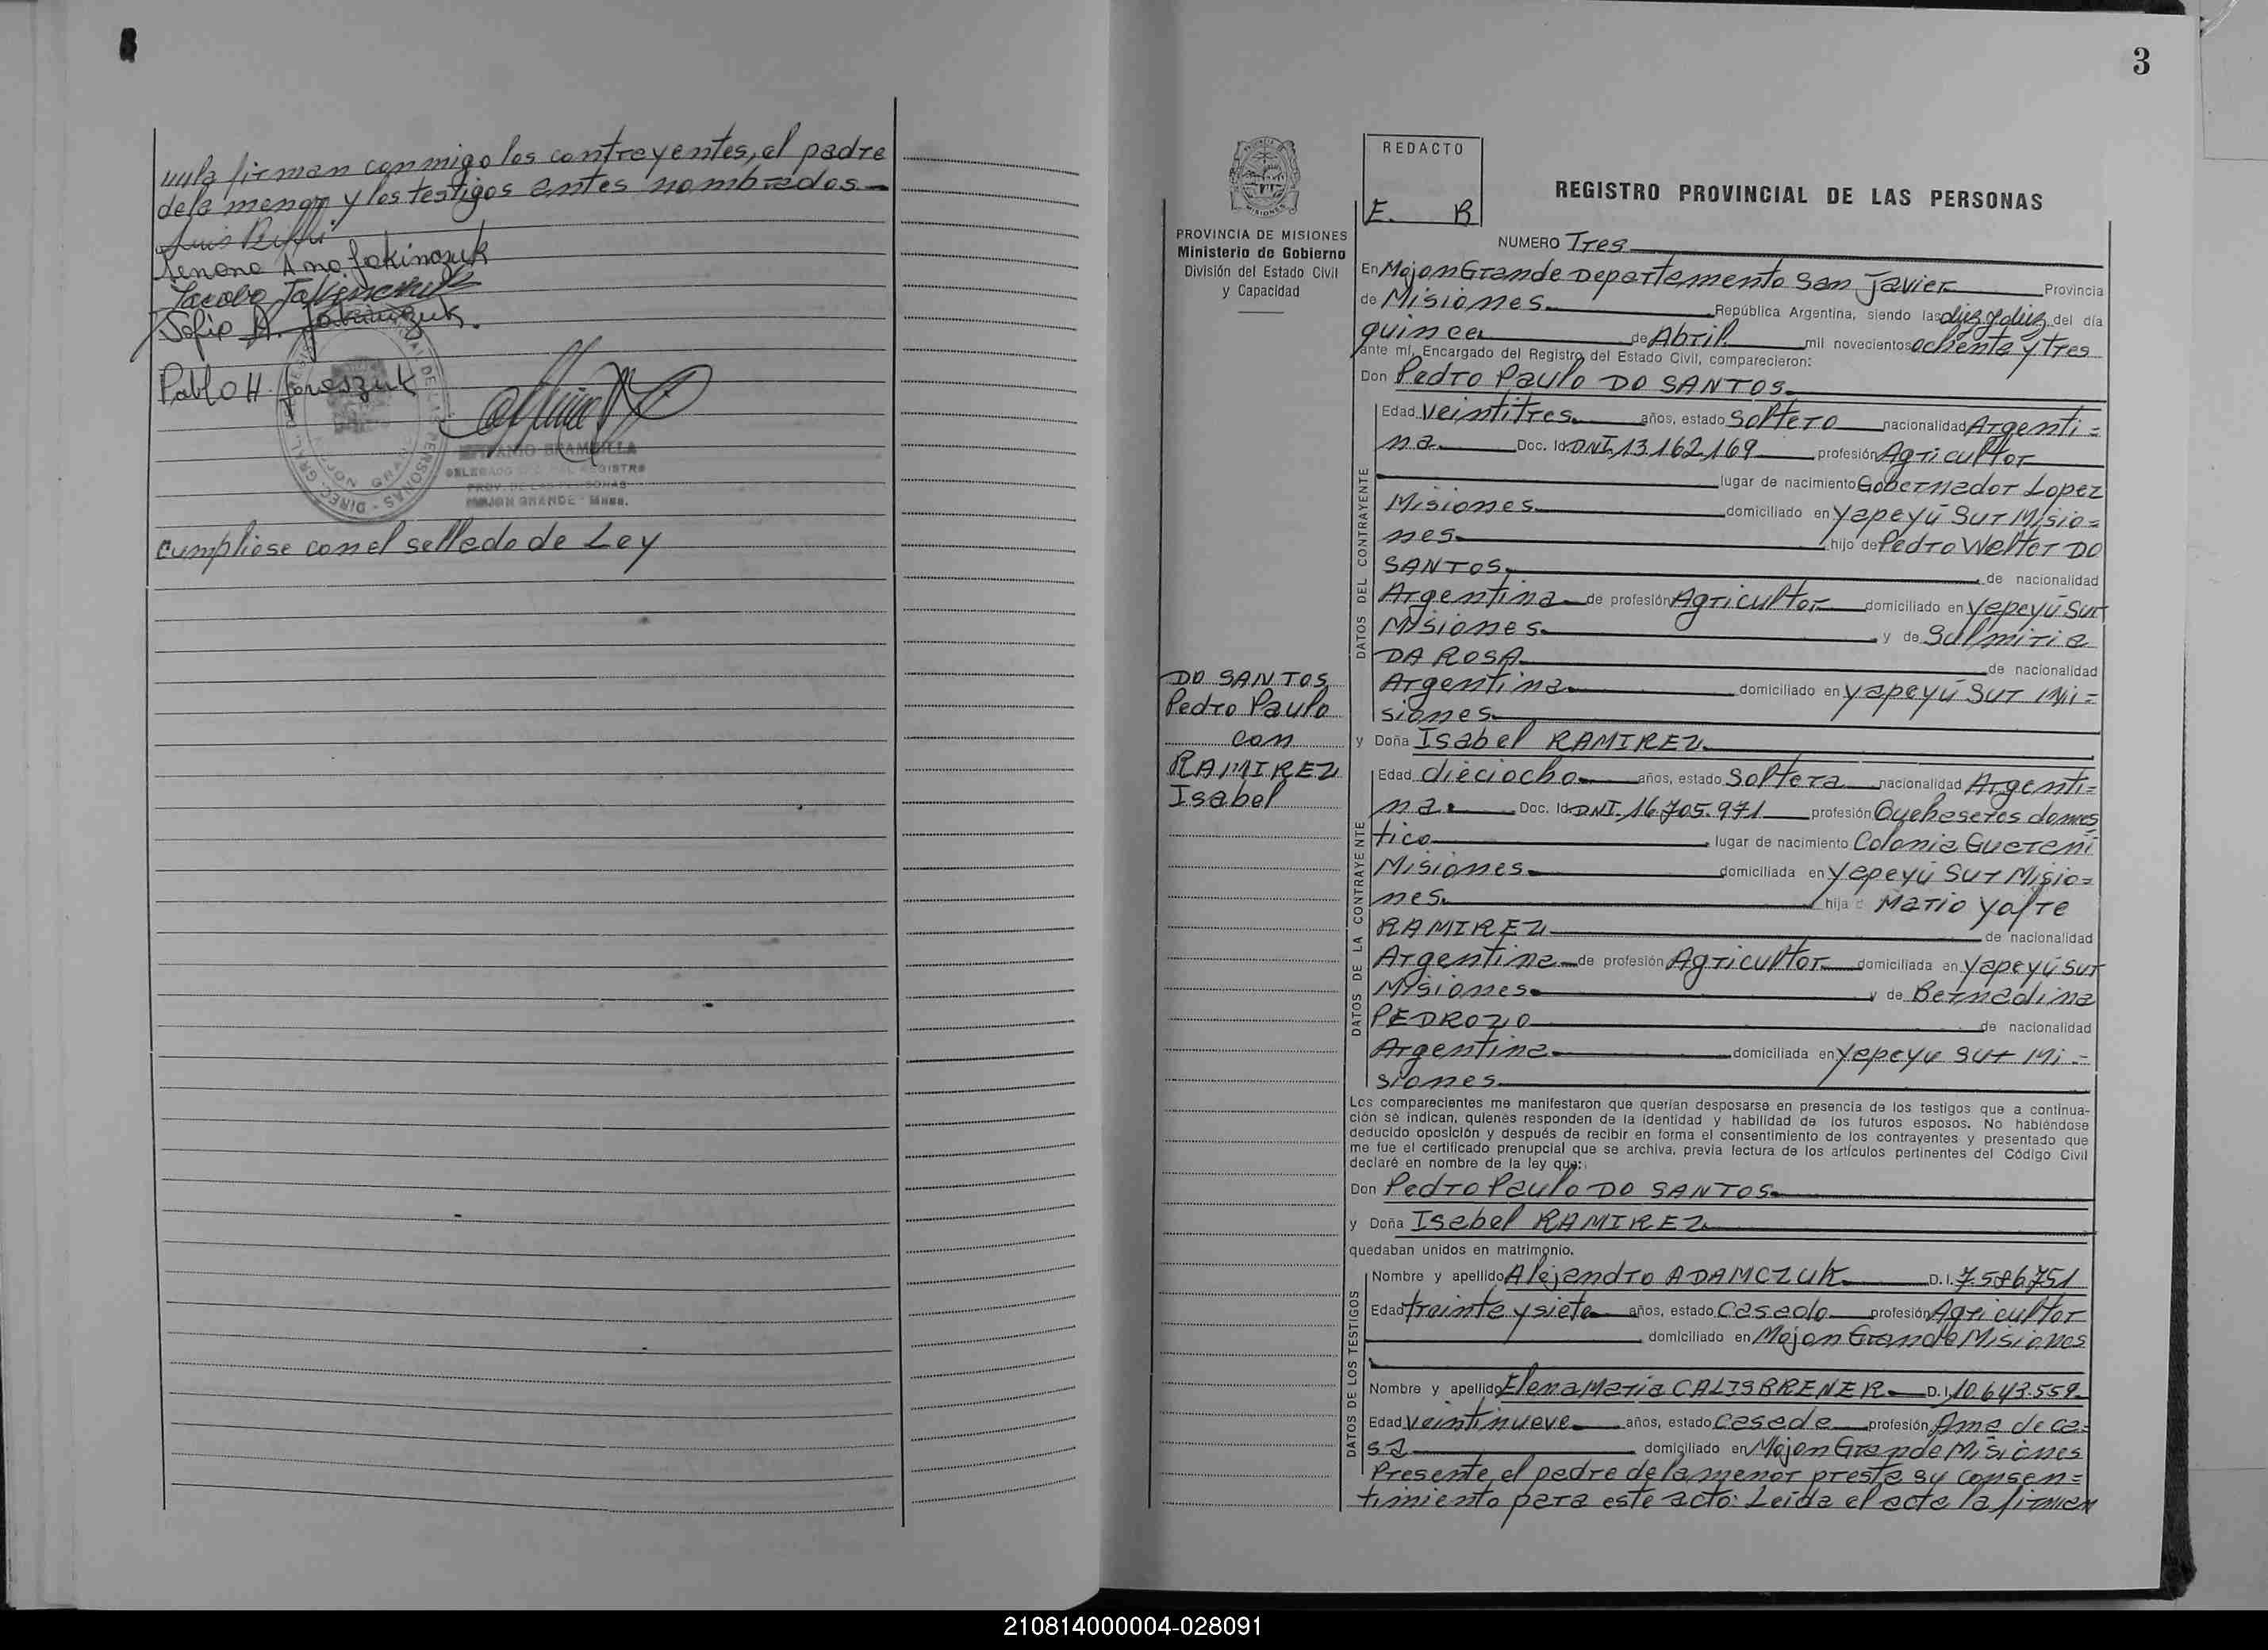 firman conmigo los contrayentes, el padre
de la menor y los testigos antes nombrados
Ana Jakimczuk
Jacobo
Sofia A. Jakimczuk.
Pablo H.
BRAMBILLA
DELEGADO REGISTRO
PROV. DE LAS PERSONAS
MOJON GRANDE - Mnes.
Cumpliose con el sellado de Ley
3
PROVINCIA DE MISIONES
Ministerio de Gobierno
División del Estado Civil
y Capacidad
DO SANTOS
Pedro Paulo
con
RAMIREZ
Isabel
REDACTO
E. B
REGISTRO PROVINCIAL DE LAS PERSONAS
NUMERO Tres
En Mojon Grande Departamento San Javier Provincia
de Misiones República Argentina, siendo las diez y diez del día
quince de Abril mil novecientos ochenta y tres
ante mí, Encargado del Registro del Estado Civil, comparecieron:
Don Pedro Paulo DO SANTOS
DATOS DEL CONTRAYENTE
Edad veintitres años, estado Soltero nacionalidad Argenti=
na Doc. Id. DNI. 13.162.169 profesión Agricultor
lugar de nacimiento Gobernador Lopez
Misiones domiciliado en Yapeyú Sur Misio=
nes hijo de Pedro Walter DO
SANTOS de nacionalidad
Argentina de profesión Agricultor domiciliado en Yapeyú Sur
Misiones y de
DA ROSA de nacionalidad
Argentina domiciliado en Yapeyú Sur Mi=
siones
y Doña Isabel RAMIREZ
DATOS DE LA CONTRAYENTE
Edad dieciocho años, estado Soltera nacionalidad Argenti=
na Doc. Id. DNI. 16.705.971 profesión Quehaseres domes
tico lugar de nacimiento Colonia Guarani
Misiones domiciliada en Yapeyú Sur Misio=
nes hija Mario
RAMIREZ de nacionalidad
Argentina de profesión Agricultor domiciliada en Yapeyú Sur
Misiones y de Bernadina
PEDROZO de nacionalidad
Argentina domiciliada en Yapeyu Sur Mi=
siones
Los comparecientes me manifestaron que querían desposarse en presencia de los testigos que a continua-
ción se indican, quienes responden de la identidad y habilidad de los futuros esposos. No habiéndose
deducido oposición y después de recibir en forma el consentimiento de los contrayentes y presentado que
me fue el certificado prenupcial que se archiva, previa lectura de los artículos pertinentes del Código Civil
declaré en nombre de la ley que:
Don Pedro Paulo DO SANTOS
y Doña Isabel RAMIREZ
quedaban unidos en matrimonio.
DATOS DE LOS TESTIGOS
Nombre y apellido Alejandro ADAMCZUK D.I. 7.586.751
Edad treinta y siete años, estado Casado profesión Agricultor
domiciliado en Mojon Grande Misiones
Nombre y apellido Elena Maria D.I. 10.643.559
Edad veintinueve años, estado Casada profesión Ama de ca=
sa domiciliado en Mojon Grande Misiones
Presente el padre de la menor presta su consen=
timiento para este acto: Leida el acta la firman
210814000004-028091